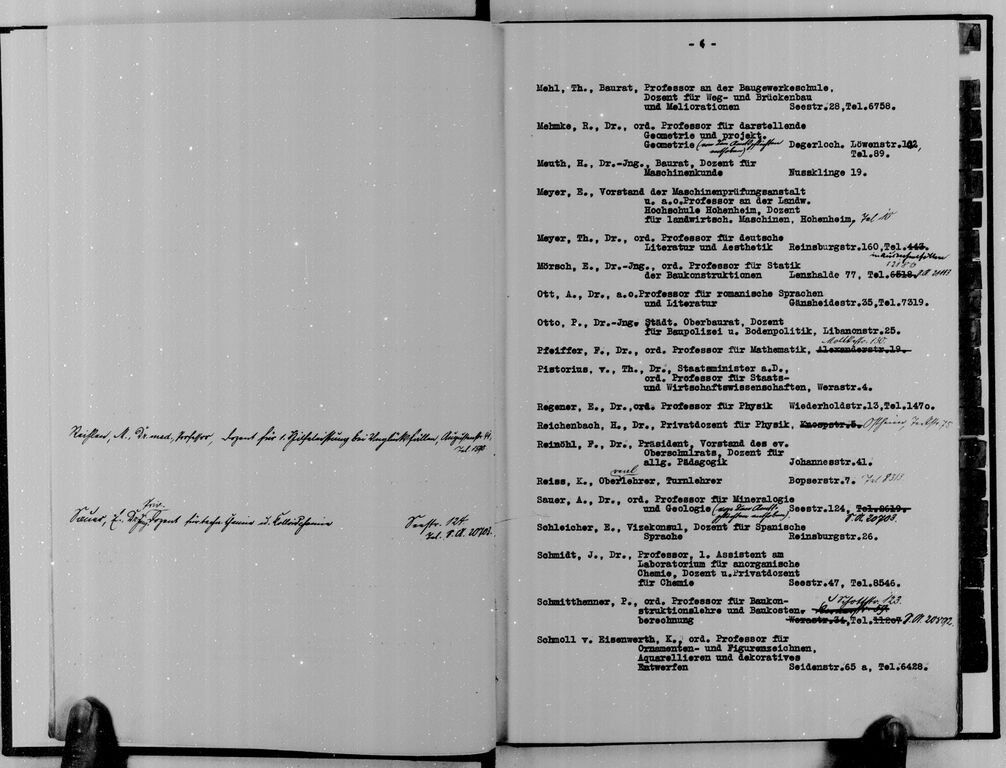 Dr. med., Professor, Dozent für 1. Hilfeleistung bei Unglücksfällen, Augustenstr. 44,
Tel.
Priv.
Sauer, E. Dr., Dozent für techn. Chemie u. Kolloidchemie Seestr. 124
Tel. S.A. 20703.
- 6 -
A
Mehl, Th., Baurat, Professor an der Baugewerkeschule,
Dozent für Weg- und Brückenbau
und Meliorationen Seestr.28,Tel.6758.
Mehmke, R., Dr., ord. Professor für darstellende
Geometrie und projekt.
Geometrie (von den Amtspflichten Degerloch. Löwenstr.102,
enthoben) Tel.89.
Meuth, H., Dr.-Jng., Baurat, Dozent für
Maschinenkunde Nussklinge 19.
Meyer, E., Vorstand der Maschinenprüfungsanstalt
u. a.o.Professor an der Landw.
Hochschule Hohenheim, Dozent
für landwirtsch. Maschinen, Hohenheim, Tel 10
Meyer, Th., Dr., ord. Professor für deutsche
Literatur und Aesthetik Reinsburgstr.160,Tel.443.
Mörsch, E., Dr.-Jng., ord. Professor für Statik
der Baukonstruktionen Lenzhalde 77, Tel.6518. S.A. 20113
Ott, A., Dr., a.o.Professor für romanische Sprachen
und Literatur Gänsheidestr.35,Tel.7319.
Otto, P., Dr.-Jng. Städt. Oberbaurat, Dozent
für Baupolizei u. Bodenpolitik, Libanonstr.25.
Moltkestr. 130.
Pfeiffer, F., Dr., ord. Professor für Mathematik, Alexanderstr.19.
Pistorius, v., Th., Dr., Staatsminister a.D.,
ord. Professor für Staats-
und Wirtschaftswissenschaften, Werastr.4.
Regener, E., Dr.,ord. Professor für Physik Wiederholdstr.13,Tel.1470.
Reichenbach, H., Dr., Privatdozent für Physik, Knospstr.5.
Reinöhl, F., Dr., Präsident, Vorstand des ev.
Oberschulrats, Dozent für
allg. Pädagogik Johannesstr.41.
Reiss, K., Oberlehrer, Turnlehrer Bopserstr.7. Tel 8313
Sauer, A., Dr., ord. Professor für Mineralogie
und Geologie (von den Amts- Seestr.124, Tel.8619.
pflichten enthoben). S.A. 20703.
Schleicher, E., Vizekonsul, Dozent für Spanische
Sprache Reinsburgstr.26.
Schmidt, J., Dr., Professor, 1. Assistent am
Laboratorium für anorganische
Chemie, Dozent u.Privatdozent
für Chemie Seestr.47, Tel.8546.
Schmitthenner, P., ord. Professor für Baukon-
struktionslehre und Baukosten-
berechnung Werastr.34,Tel.11207 S.A. 20892.
Schmoll v. Eisenwerth, K., ord. Professor für
Ornamenten- und Figurenzeichnen,
Aquarellieren und dekoratives
Entwerfen Seidenstr.65 a, Tel.6428.